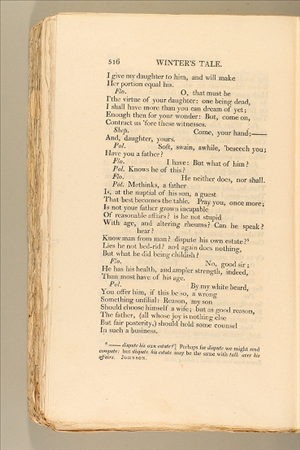 516 WINTER'S TALE.
I give my daughter to him, and will make
Her portion equal his.
Flo. O, that must be
I'the virtue of your daughter: one being dead,
I shall have more than you can dream of yet;
Enough then for your wonder: But, come on,
Contract us 'fore these witnesses.
Shep. Come, your hand;——
And, daughter, yours.
Pol. Soft, swain, awhile, 'beseech you;
Have you a father?
Flo. I have: But what of him?
Pol. Knows he of this?
Flo. He neither does, nor shall.
Pol. Methinks, a father
Is, at the nuptial of his son, a guest
That best becomes the table. Pray you, once more;
Is not your father grown incapable
Of reasonable affairs? is he not stupid
With age, and altering rheums? Can he speak?
hear?
Know man from man? dispute his own estate?⁶
Lies he not bed-rid? and again does nothing,
But what he did being childish?
Flo. No, good sir;
He has his health, and ampler strength, indeed,
Than most have of his age.
Pol. By my white beard,
You offer him, if this be so, a wrong
Something unfilial: Reason, my son
Should choose himself a wife; but as good reason,
The father, (all whose joy is nothing else
But fair posterity,) should hold some counsel
In such a business.
⁶ —— dispute his own estate?] Perhaps for dispute we might read
compute: but dispute his estate may be the same with talk over his
affairs. JOHNSON.